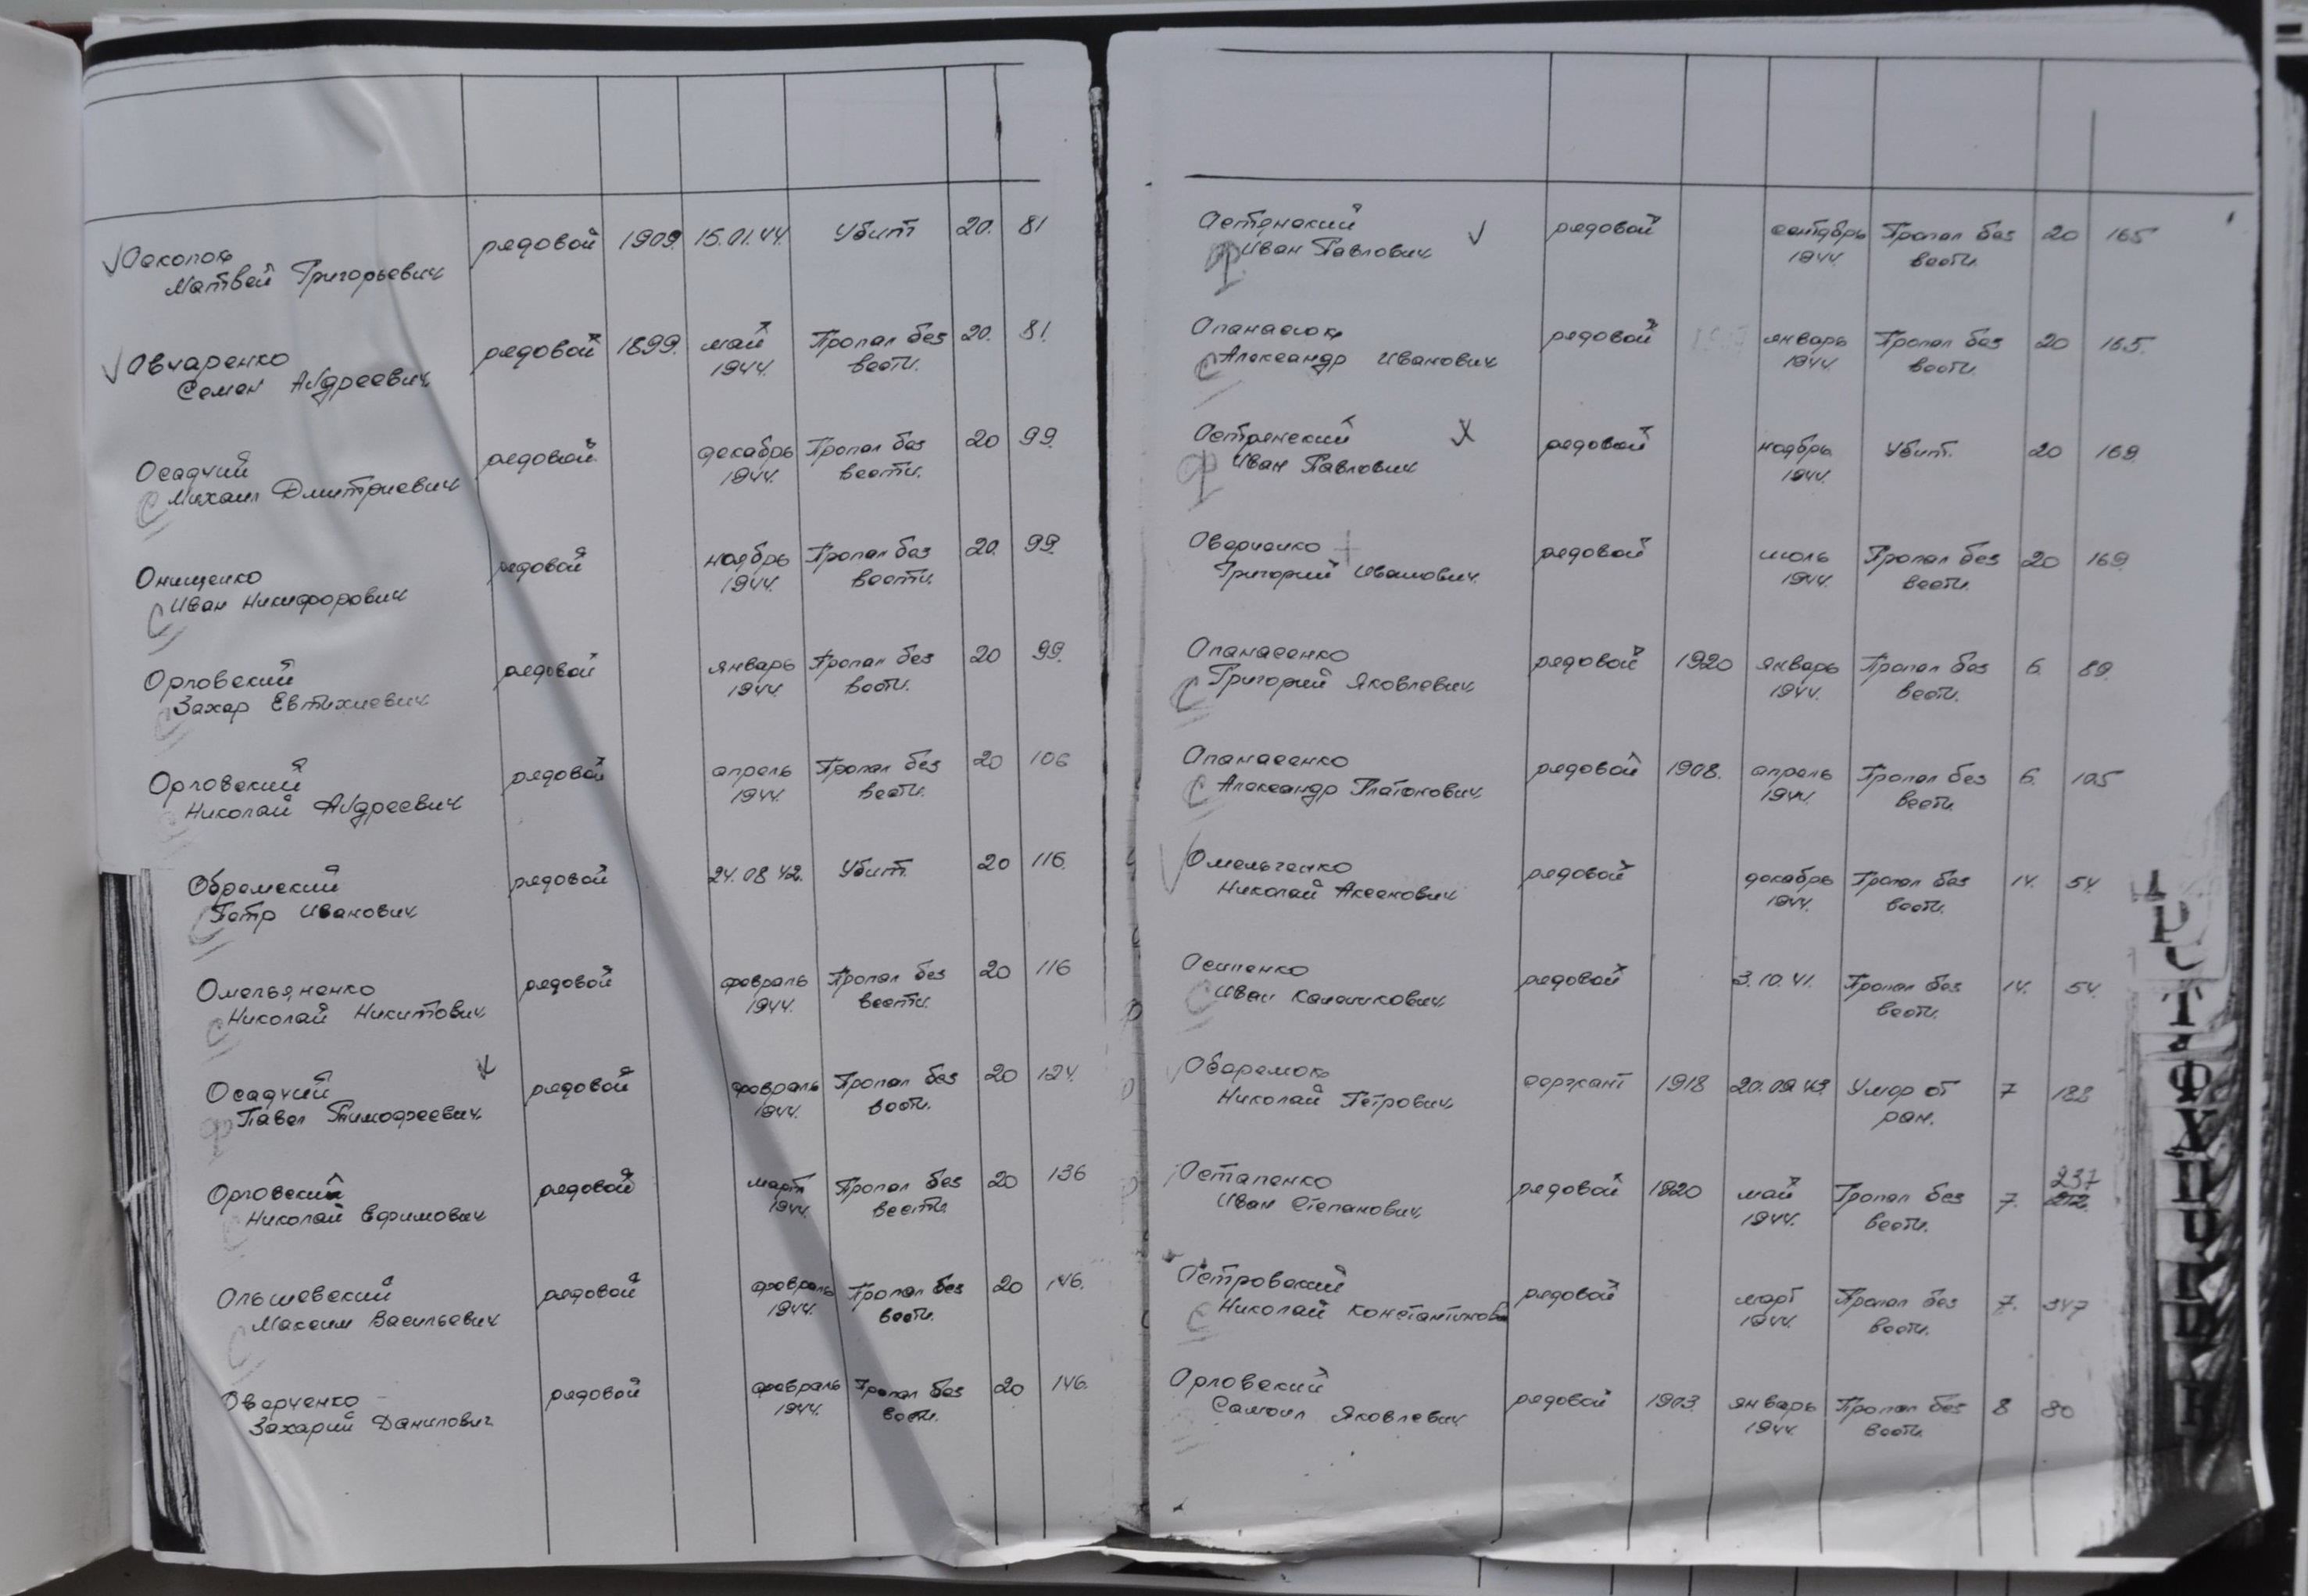 Осколок рядовой 1909. 15.01.44. Убит 20. 81
Матвей Григорьевич
Овчаренко рядовой 1899. май Пропал без 20. 81.
Семен Андреевич 1944. вести.
Осадчий рядовой декабрь Пропал без 20 99.
Михаил Дмитриевич 1944. вести.
Онищенко рядовой ноябрь Пропал без 20. 99.
Иван Никифорович 1944. вести.
Орловский рядовой январь Пропал без 20 99.
Захар Евтихиевич 1944. вести.
Орловский рядовой апрель Пропал без 20 106
Николай Андреевич 1944. вести.
Обремский рядовой 24.08.42. Убит. 20 116.
Петр Иванович
Омельяненко рядовой февраль Пропал без 20 116
Николай Никитович 1944. вести.
Осадчий рядовой февраль Пропал без 20 124.
Павел Тимофеевич 1944. вести.
Орловский рядовой март Пропал без 20 136
Николай Ефимович 1944. вести.
Ольшевский рядовой февраль Пропал без 20 146.
Максим Васильевич 1944. вести.
Оверченко рядовой февраль Пропал без 20 146.
Захарий Данилович 1944. вести.
рядовой сентябрь Пропал без 20 165
Иван Павлович 1944. вести.
Опанасюк рядовой январь Пропал без 20 165.
Александр Иванович 1944. вести.
Острянский рядовой ноябрь Убит. 20 169.
Иван Павлович 1944.
рядовой июль Пропал без 20 169
Григорий Иванович 1944. вести.
Опанасенко рядовой 1920 январь Пропал без 6. 89.
Григорий Яковлевич 1944. вести.
Опанасенко рядовой 1908. апрель Пропал без 6. 105
Александр Платонович 1944. вести.
Омельченко рядовой декабрь Пропал без 14. 54.
Николай Аксенович 1944. вести.
Осипенко рядовой 3.10.41. Пропал без 14. 54.
Иван вести.
сержант 1918 20.09.43. Умер от 7 188
Николай Петрович ран.
Остапенко рядовой 1920 май Пропал без 7. 237
Иван Степанович 1944. вести.
Островский рядовой март Пропал без 7. 347
Николай Константинов 1944. вести.
Орловский рядовой 1903. январь Пропал без 8 80
Самоил Яковлевич 1944. вести.